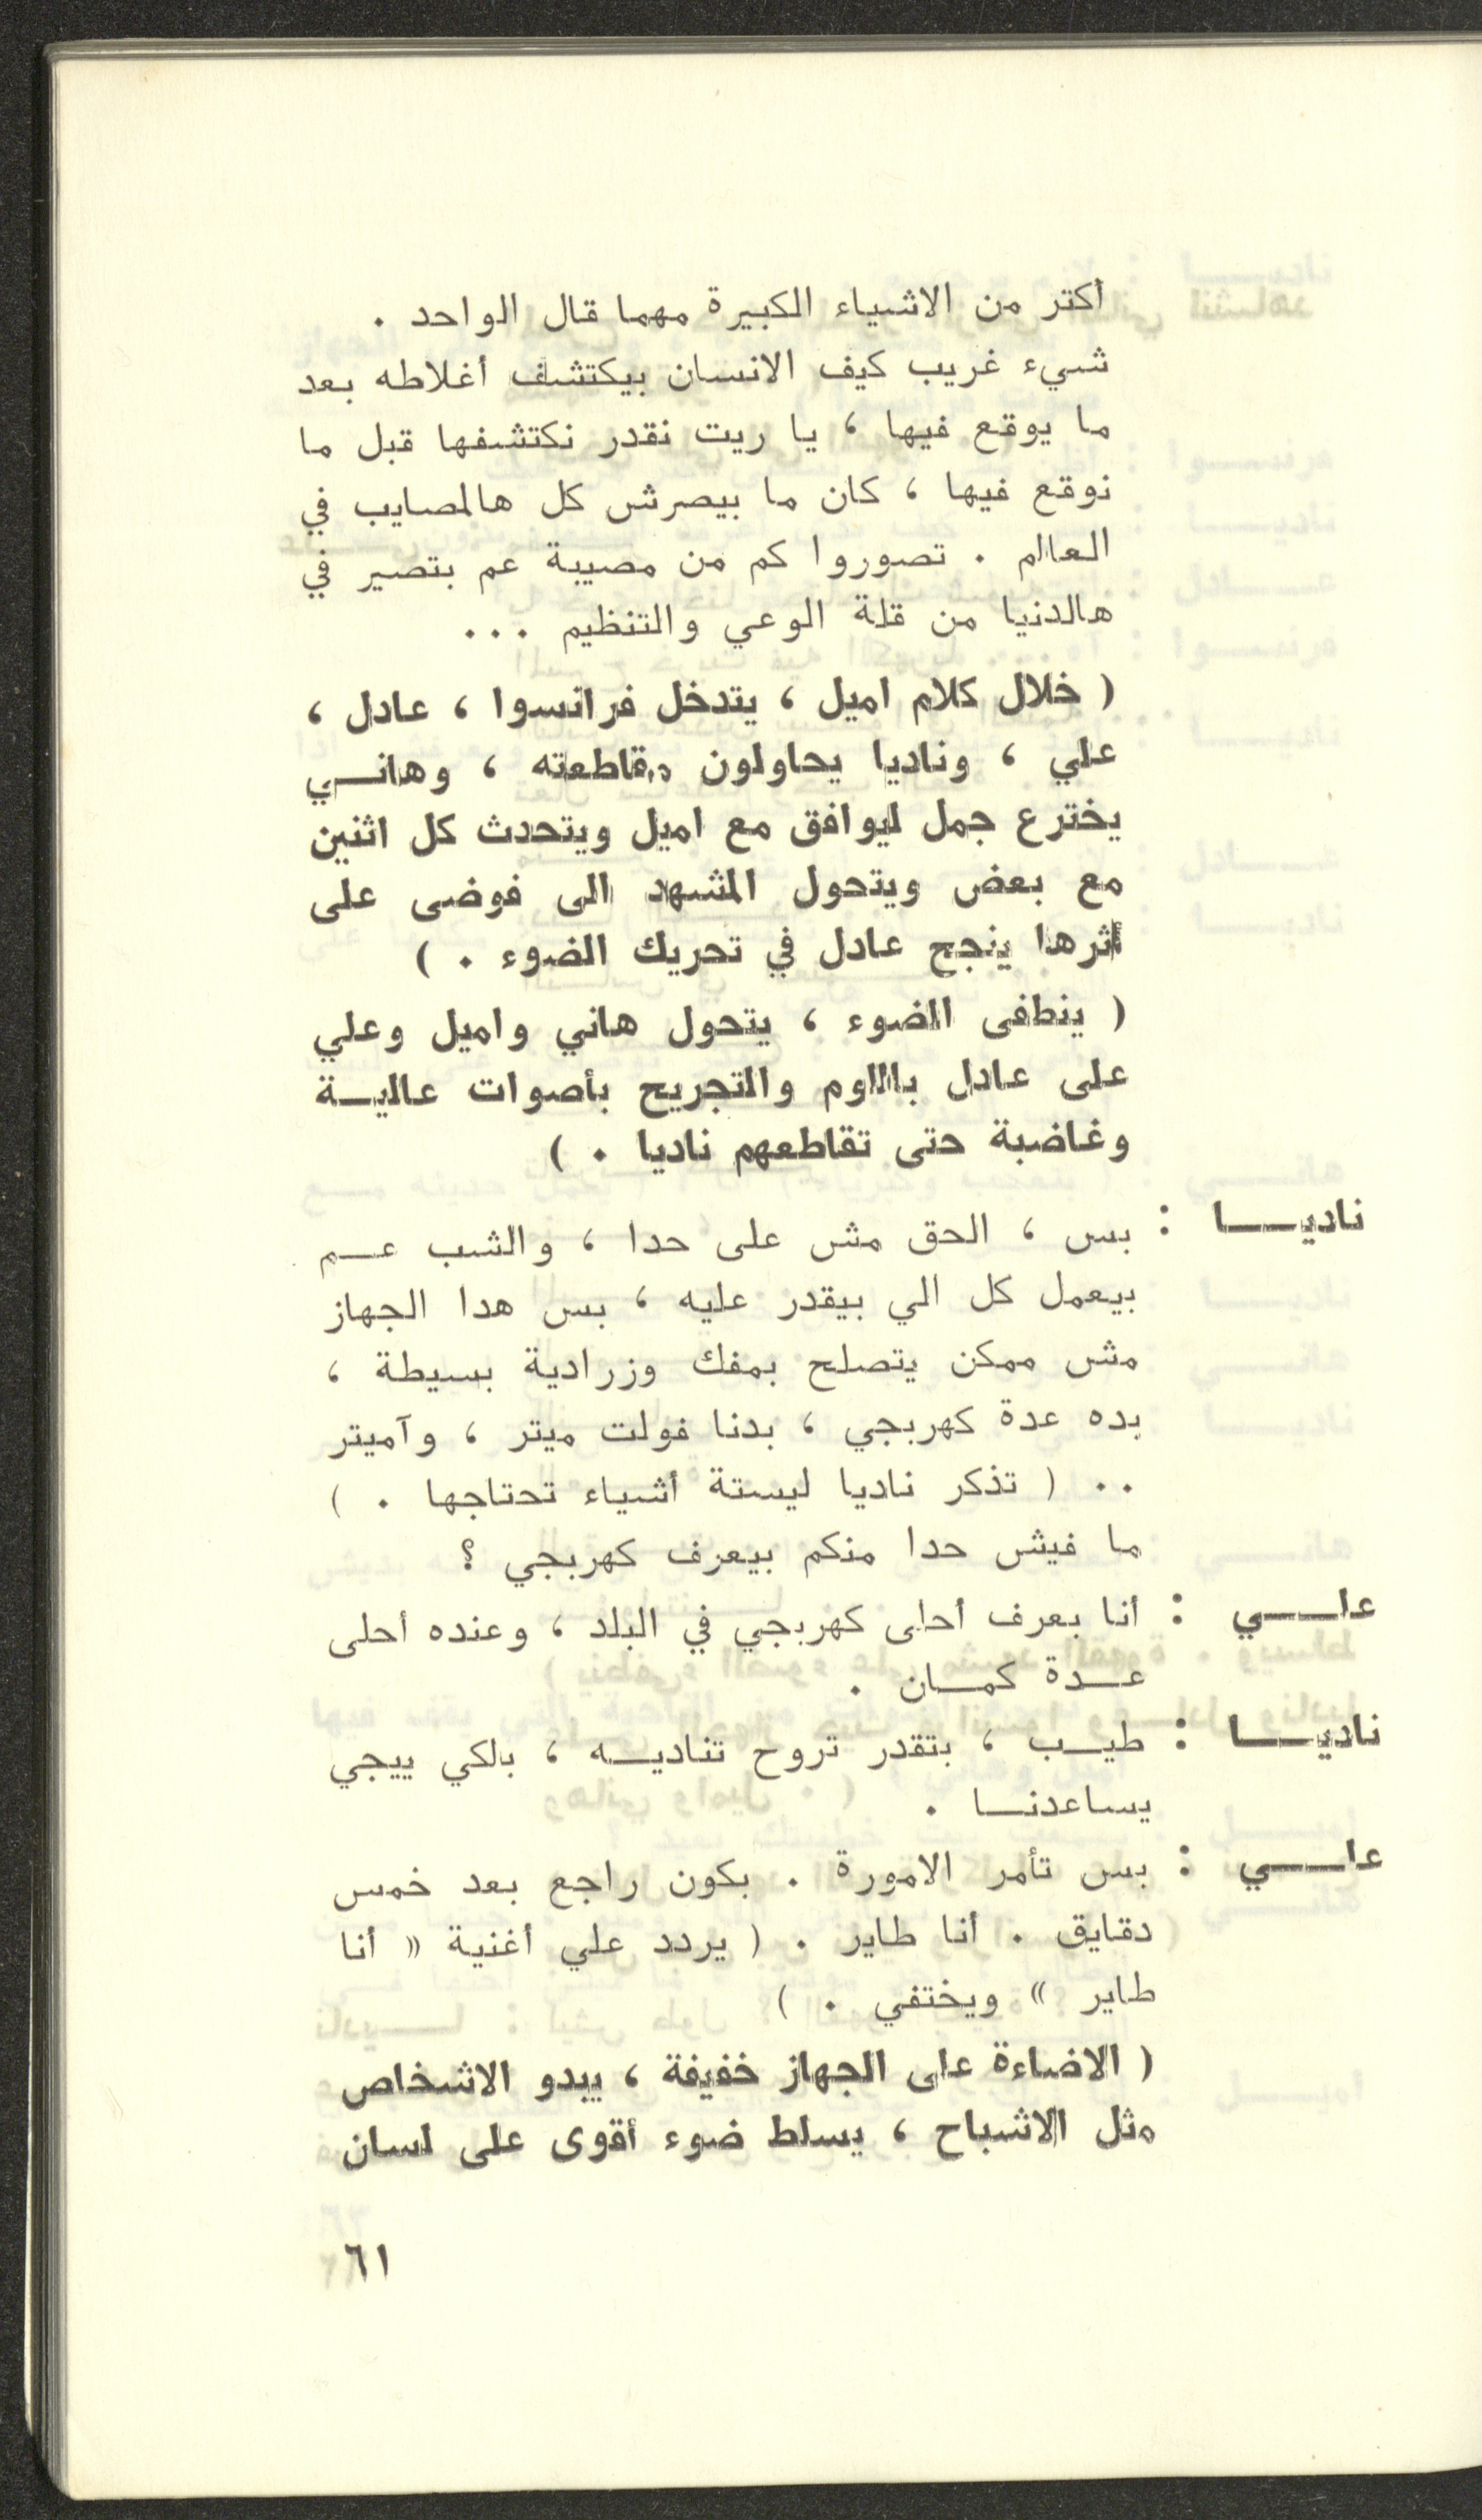 أكتر من الاشياء الكبيرة مهما قال الواحد .
شيء غريب كيف الانسان بيكتشف أغلاطه بعد
ما يوقع فيها ، يا ريت نقدر نكتشفها قبل ما
نوقع فيها ، كان ما بيصرش كل هالمصايب في
العالم . تصوروا كم من مصيبة عم بتصير في
هالدنيا من قلة الوعي والتنظيم ...
( خلال كلام اميل ، يتدخل فرانسوا ، عادل ،
علي ، وناديا يحاولون مقاطعته ، وهانــي
يخترع جمل ليوافق مع اميل ويتحدث كل اثنين
مع بعض ويتحول المشهد الى فوضى على
أثرها ينجح عادل في تحريك الضوء . )
( ينطفى الضوء ، يتحول هاني واميل وعلي
على عادل باللوم والتجريح بأصوات عاليــة
وغاضبة حتى تقاطعهم ناديا . )
ناديـــا : بس ، الحق مش على حدا ، والشب عــم
بيعمل كل الي بيقدر عليه ، بس هدا الجهاز
مش ممكن يتصلح بمفك وزرادية بسيطة ،
بده عدة كهربجي ، بدنا فولت ميتر ، وآميتر
.. ( تذكر ناديا ليستة أشياء تحتاجها . )
ما فيش حدا منكم بيعرف كهربجي ؟
علـــي : أنا بعرف أحلى كهربجي في البلد ، وعنده أحلى
عــدة كمــان .
ناديـــا : طيــب ، بتقدر تروح تناديــه ، بلكي ييجي
يساعدنــا .
علـــي : بس تأمر الامورة . بكون راجع بعد خمس
دقايق . أنا طاير . ( يردد علي أغنية « أنا
طاير » ويختفي . )
( الاضاءة على الجهاز خفيفة ، يبدو الاشخاص
مثل الاشباح ، يسلط ضوء أقوى على لسان
٦١